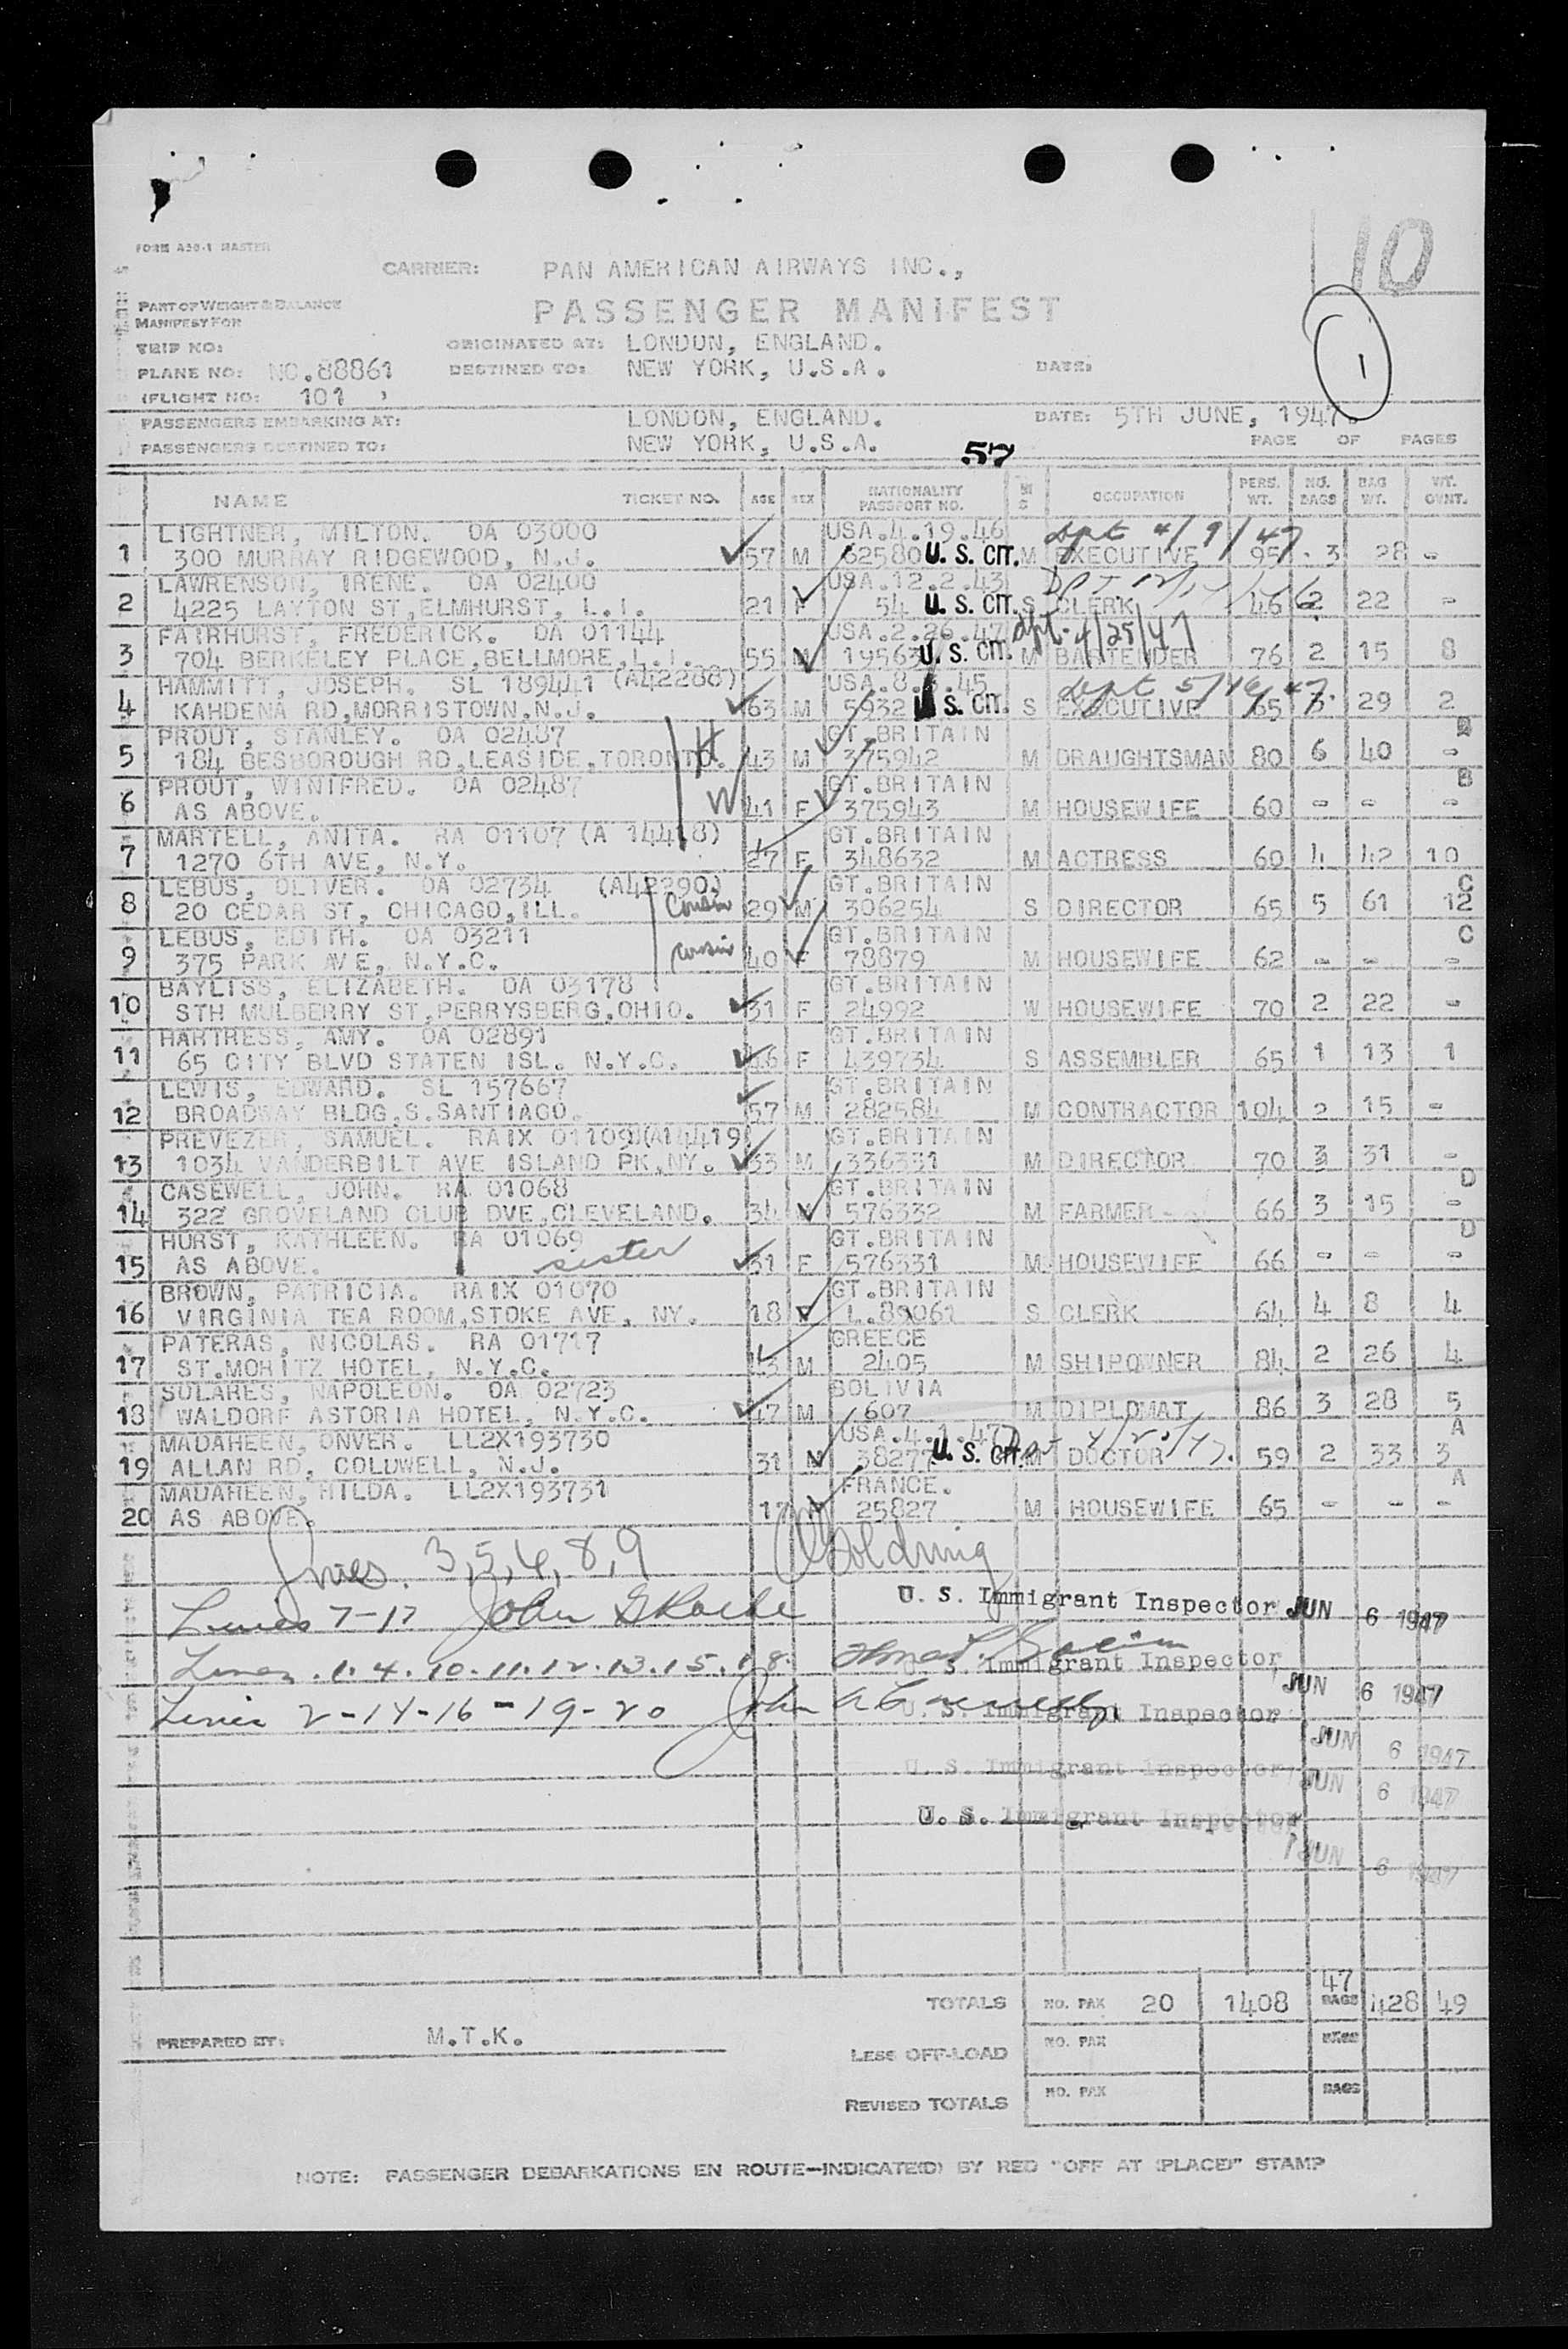 10
FORM A30-1 MASTER
CARRIER: PAN AMERICAN AIRWAYS INC.,
PART OF WEIGHT & BALANCE
MANIFEST FOR
PASSENGER MANIFEST
1
TRIP NO: ORIGINATED AT: LONDON, ENGLAND.
PLANE NO: NC.88861 DESTINED TO: NEW YORK, U.S.A. DATE:
(FLIGHT NO: 101 )
PASSENGERS EMBARKING AT: LONDON, ENGLAND. DATE: 5TH JUNE, 1947.
PASSENGERS DESTINED TO: NEW YORK, U.S.A. PAGE OF PAGES
57
NAME TICKET NO. AGE SEX NATIONALITY PASSPORT NO. M S OCCUPATION PERS. WT. NO. BAGS BAG WT. WT. OVNT.
LIGHTNER, MILTON. OA 03000 USA.4.19.46 dpt 4/9/47
1 300 MURRAY RIDGEWOOD, N.J. 57 M 62580 U. S. CIT. M EXECUTIVE 95 3 28 -
LAWRENSON, IRENE. OA 02400 USA.12.2.43
2 4225 LAYTON ST,ELMHURST, L.I. 21 F 54 U. S. CIT. S CLERK 46 2 22 -
FAIRHURST, FREDERICK. OA 01144 USA.2.26.47 dpt. 4/25/47
3 704 BERKELEY PLACE,BELLMORE,L.I. 55 M 19563 U. S. CIT. M BARTENDER 76 2 15 8
HAMMITT, JOSEPH. SL 189441 (A42288) dept 5/16/47
4 KAHDENA RD,MORRISTOWN,N.J. 63 M 5932 U. S. CIT. S EXECUTIVE 65 3 29 2
PROUT, STANLEY. OA 02487 H GT.BRITAIN B
5 184 BESBOROUGH RD,LEASIDE,TORONTO. 43 M 375942 M DRAUGHTSMAN 80 6 40 -
PROUT, WINIFRED. OA 02487 W GT.BRITAIN B
6 AS ABOVE. 41 F 375943 M HOUSEWIFE 60 - - -
MARTELL, ANITA. RA 01107 (A 14418) GT.BRITAIN
7 1270 6TH AVE, N.Y. 27 F 348632 M ACTRESS 60 4 42 10
LEBUS, OLIVER. OA 02734 (A42290) GT.BRITAIN C
8 20 CEDAR ST, CHICAGO,ILL. Cousin 29 M 306254 S DIRECTOR 65 5 61 12
LEBUS, EDITH. OA 03211 GT.BRITAIN C
9 375 PARK AVE, N.Y.C. cousin 40 F 78879 M HOUSEWIFE 62 - - -
BAYLISS, ELIZABETH. OA 03178 GT.BRITAIN
10 STH MULBERRY ST,PERRYSBERG,OHIO. 31 F 24992 W HOUSEWIFE 70 2 22 -
HARTRESS, AMY. OA 02891 GT.BRITAIN
11 65 CITY BLVD STATEN ISL. N.Y.C. 46 F 439734 S ASSEMBLER 65 1 13 1
LEWIS, EDWARD. SL 157667 GT.BRITAIN
12 BROADWAY BLDG,S.SANTIAGO. 57 M 282584 M CONTRACTOR 104 2 15 -
PREVEZER, SAMUEL. RAIX 01109(A14419) GT.BRITAIN
13 1034 VANDERBILT AVE ISLAND PK,NY. 33 M 336331 M DIRECTOR 70 3 31 -
CASEWELL, JOHN. RA 01068 GT.BRITAIN D
14 322 GROVELAND CLUB DVE,CLEVELAND. 34 M 576332 M FARMER 66 3 15 -
HURST, KATHLEEN. RA 01069 GT.BRITAIN D
15 AS ABOVE. sister 31 F 576331 M HOUSEWIFE 66 - - -
BROWN, PATRICIA. RAIX 01070 GT.BRITAIN
16 VIRGINIA TEA ROOM,STOKE AVE, NY. 18 F L.89061 S CLERK 64 4 8 4
PATERAS, NICOLAS. RA 01717 GREECE
17 ST.MORITZ HOTEL, N.Y.C. 43 M 2405 M SHIPOWNER 84 2 26 4
SOLARES, NAPOLEON. OA 02723 BOLIVIA
18 WALDORF ASTORIA HOTEL, N.Y.C. 47 M 607 M DIPLOMAT 86 3 28 5
MADAHEEN, ONVER. LL2X193730 USA.4.1.47 A
19 ALLAN RD, COLDWELL, N.J. 31 M 38277 U. S. CIT. M DOCTOR 59 2 33 3
MADAHEEN, HILDA. LL2X193731 FRANCE. A
20 AS ABOVE. 17 25827 M HOUSEWIFE 65 - - -
Lines. 3,5,6,8,9 Goldring
U. S. Immigrant Inspector JUN 6 1947
Lines 7-17 John
Lines. 1. 4. 10. 11. 12. 13. 15. 18.
U. S. Immigrant Inspector
JUN 6 1947
Lines 2-14-16-19-20 John
U. S. Immigrant Inspector
JUN 6 1947
U. S. Immigrant Inspector
JUN 6 1947
U. S. Immigrant Inspector
JUN 6 1947
TOTALS NO. PAX 20 1408 47 BAGS 428 49
PREPARED BY: M.T.K.
LESS OFF-LOAD NO. PAX BAGS
REVISED TOTALS NO. PAX BAGS
NOTE: PASSENGER DEBARKATIONS EN ROUTE—INDICATE(D) BY RED "OFF AT (PLACE)" STAMP